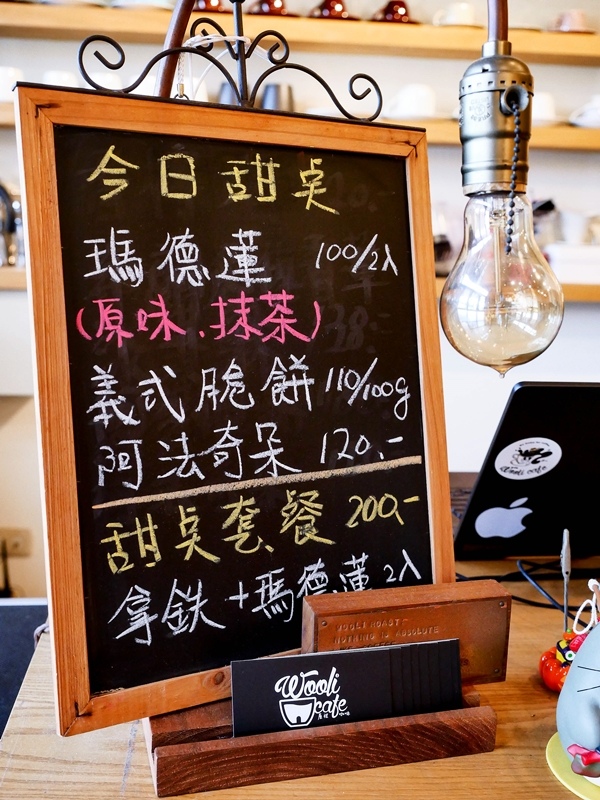 今日甜点
瑪德蓮 100/2入
(原味、抹茶)
義式脆餅 110/100g
阿法奇朵 120.-
甜点套餐 200.-
拿鉄+瑪德蓮 2入
WOOLI ROAST
NOTHING IS ABSOLUTE
Wooli
cafe
Wooli cafe